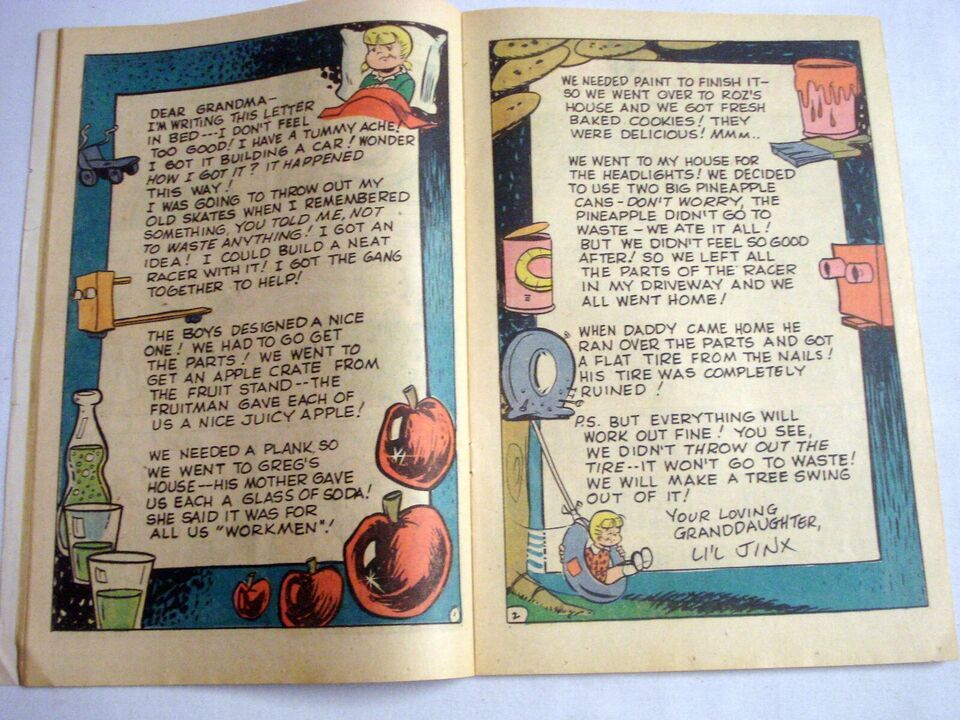 DEAR GRANDMA—
I'M WRITING THIS LETTER
IN BED---I DON'T FEEL
TOO GOOD! I HAVE A TUMMY ACHE!
I GOT IT BUILDING A CAR! WONDER
HOW I GOT IT? IT HAPPENED
THIS WAY!
I WAS GOING TO THROW OUT MY
OLD SKATES WHEN I REMEMBERED
SOMETHING, YOU TOLD ME, NOT
TO WASTE ANYTHING! I GOT AN
IDEA! I COULD BUILD A NEAT
RACER WITH IT! I GOT THE GANG
TOGETHER TO HELP!
THE BOYS DESIGNED A NICE
ONE! WE HAD TO GO GET
THE PARTS! WE WENT TO
GET AN APPLE CRATE FROM
THE FRUIT STAND--THE
FRUITMAN GAVE EACH OF
US A NICE JUICY APPLE!
WE NEEDED A PLANK, SO
WE WENT TO GREG'S
HOUSE--HIS MOTHER GAVE
US EACH A GLASS OF SODA!
SHE SAID IT WAS FOR
ALL US "WORKMEN"!
1
WE NEEDED PAINT TO FINISH IT—
SO WE WENT OVER TO ROZ'S
HOUSE AND WE GOT FRESH
BAKED COOKIES! THEY
WERE DELICIOUS! MMM..
WE WENT TO MY HOUSE FOR
THE HEADLIGHTS! WE DECIDED
TO USE TWO BIG PINEAPPLE
CANS - DON'T WORRY, THE
PINEAPPLE DIDN'T GO TO
WASTE - WE ATE IT ALL!
BUT WE DIDN'T FEEL SO GOOD
AFTER! SO WE LEFT ALL
THE PARTS OF THE RACER
IN MY DRIVEWAY AND WE
ALL WENT HOME!
WHEN DADDY CAME HOME HE
RAN OVER THE PARTS AND GOT
A FLAT TIRE FROM THE NAILS!
HIS TIRE WAS COMPLETELY
RUINED!
P.S. BUT EVERYTHING WILL
WORK OUT FINE! YOU SEE,
WE DIDN'T THROW OUT THE
TIRE--IT WON'T GO TO WASTE!
WE WILL MAKE A TREE SWING
OUT OF IT!
YOUR LOVING
GRANDDAUGHTER,
LI'L JINX
2